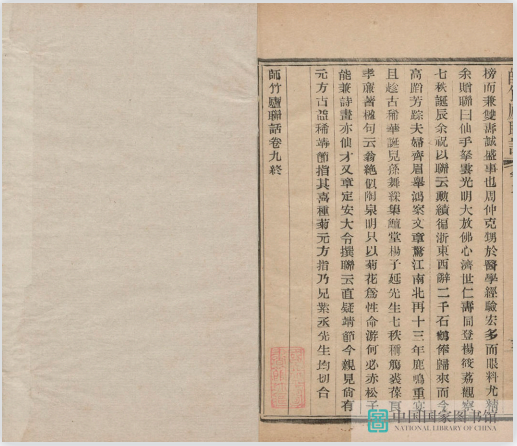 榜而兼雙壽誠盛事也周仲克甥於醫學經驗宏多而眼科尤精
余贈聯曰仙手拏雲光明大放佛心濟世仁壽同登楊筱荔觀察
七秩誕辰余祝以聯云勳績徧浙東西辭二千石鶴俸歸來而今
高蹈芳踪夫婦齊眉舉鴻案文章驚江南北再十三年鹿鳴重宴
且趁古稀華誕兒孫舞綵集
堂楊子延先生七秩稱觴裘葆良
孝廉著楹句云翁絕似陶泉明只以菊花爲性命游何必赤松子
能兼詩畫亦仙才又章定安大令撰聯云直疑靖節今親見尙有
元方古益稀靖節指其喜種菊元方指乃兄紫丞先生均切合
師竹廬聯話卷九終
中国国家图书馆
NATIONAL LIBRARY OF CHINA